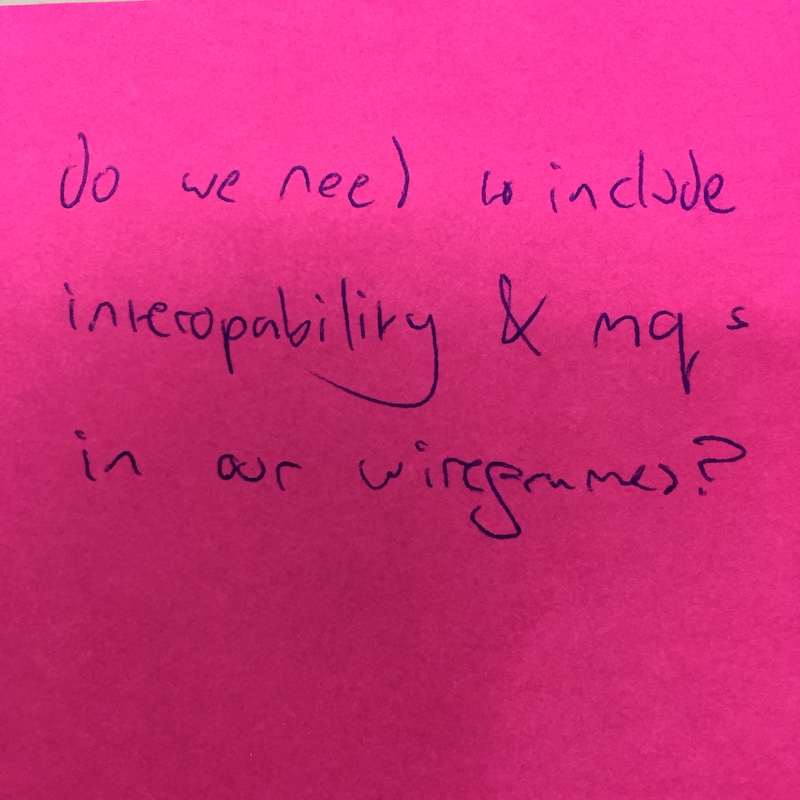 do we need to include
interopability & mq s
in our wireframes?